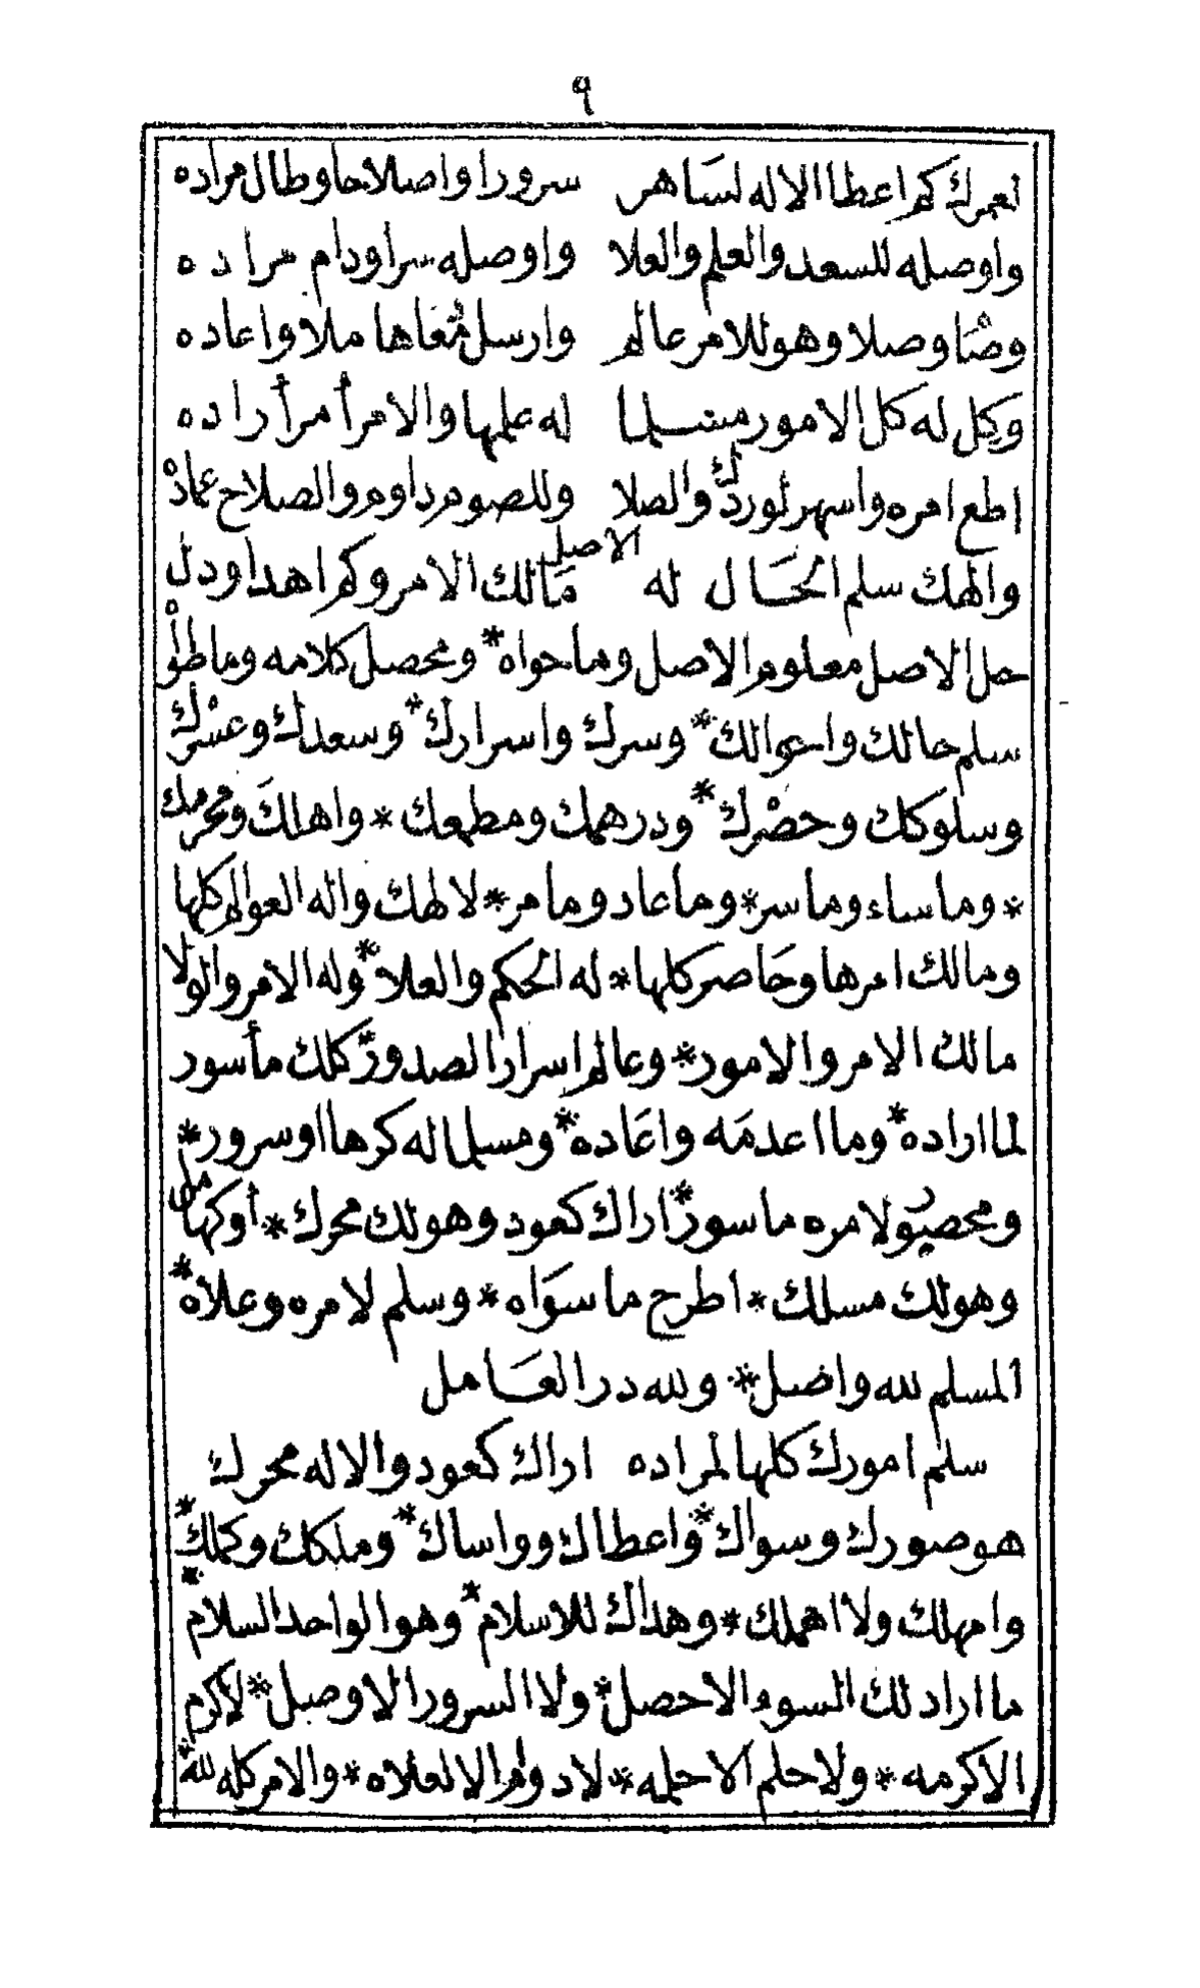 ٩
لعمرك كم اعطا الاله لساهر سرورا واصلاحا وطال مراده
واوصله للسعد والعلم والعلا واوصله سرا ودام مراده
وصاوصلا وهو للامر عالم وارسل معاها ملا واعاده
وكل له كل الامور مسلما له علمها والامر أمرأ راده
اطع امره واسهر لوردك والصلا وللصوم داوم والصلاح عماد
والهك سلم الحال له الاصل مالك الامر وكم اهدا ودل
حل الاصل معلوم الاصل وما حواه * ومحصل كلامه وما طوا
سلم حالك واحوالك * وسرك واسرارك * وسعدك وعسرك
وسلوكك وحصرك * ودرهمك ومطمعك * واهلك ومحرمك
* وما ساء وما سر * وما عاد وما مر * لالهك واله العوالم كلها
ومالك امرها وحاصر كلها * له الحكم والعلا * وله الامر والولا
مالك الامر والامور * وعالم اسرار الصدور * كلك مأسور
لما اراده * وما اعدمه واعاده * ومسلما له كرها او سرور *
ومحصور لامره ماسور * اراك كعود وهو لك محرك * أو كهامل
وهو لك مسلك * اطرح ما سواه * وسلم لامره وعلاه *
المسلم لله واصل * ولله در العامل
سلم امورك كلها لمراده اراك كعود والاله محرك
هو صورك وسواك * واعطاك وواساك * وملكك وكملك *
وامهلك ولا اهملك * وهداك للاسلام * وهو الواحد السلام *
ما اراد لك السوء الا حصل * ولا السرور الا وصل * لا كرم
الا كرمه * ولا حلم الا حلمه * لا دوام الا لعلاه * والامر كله لله *